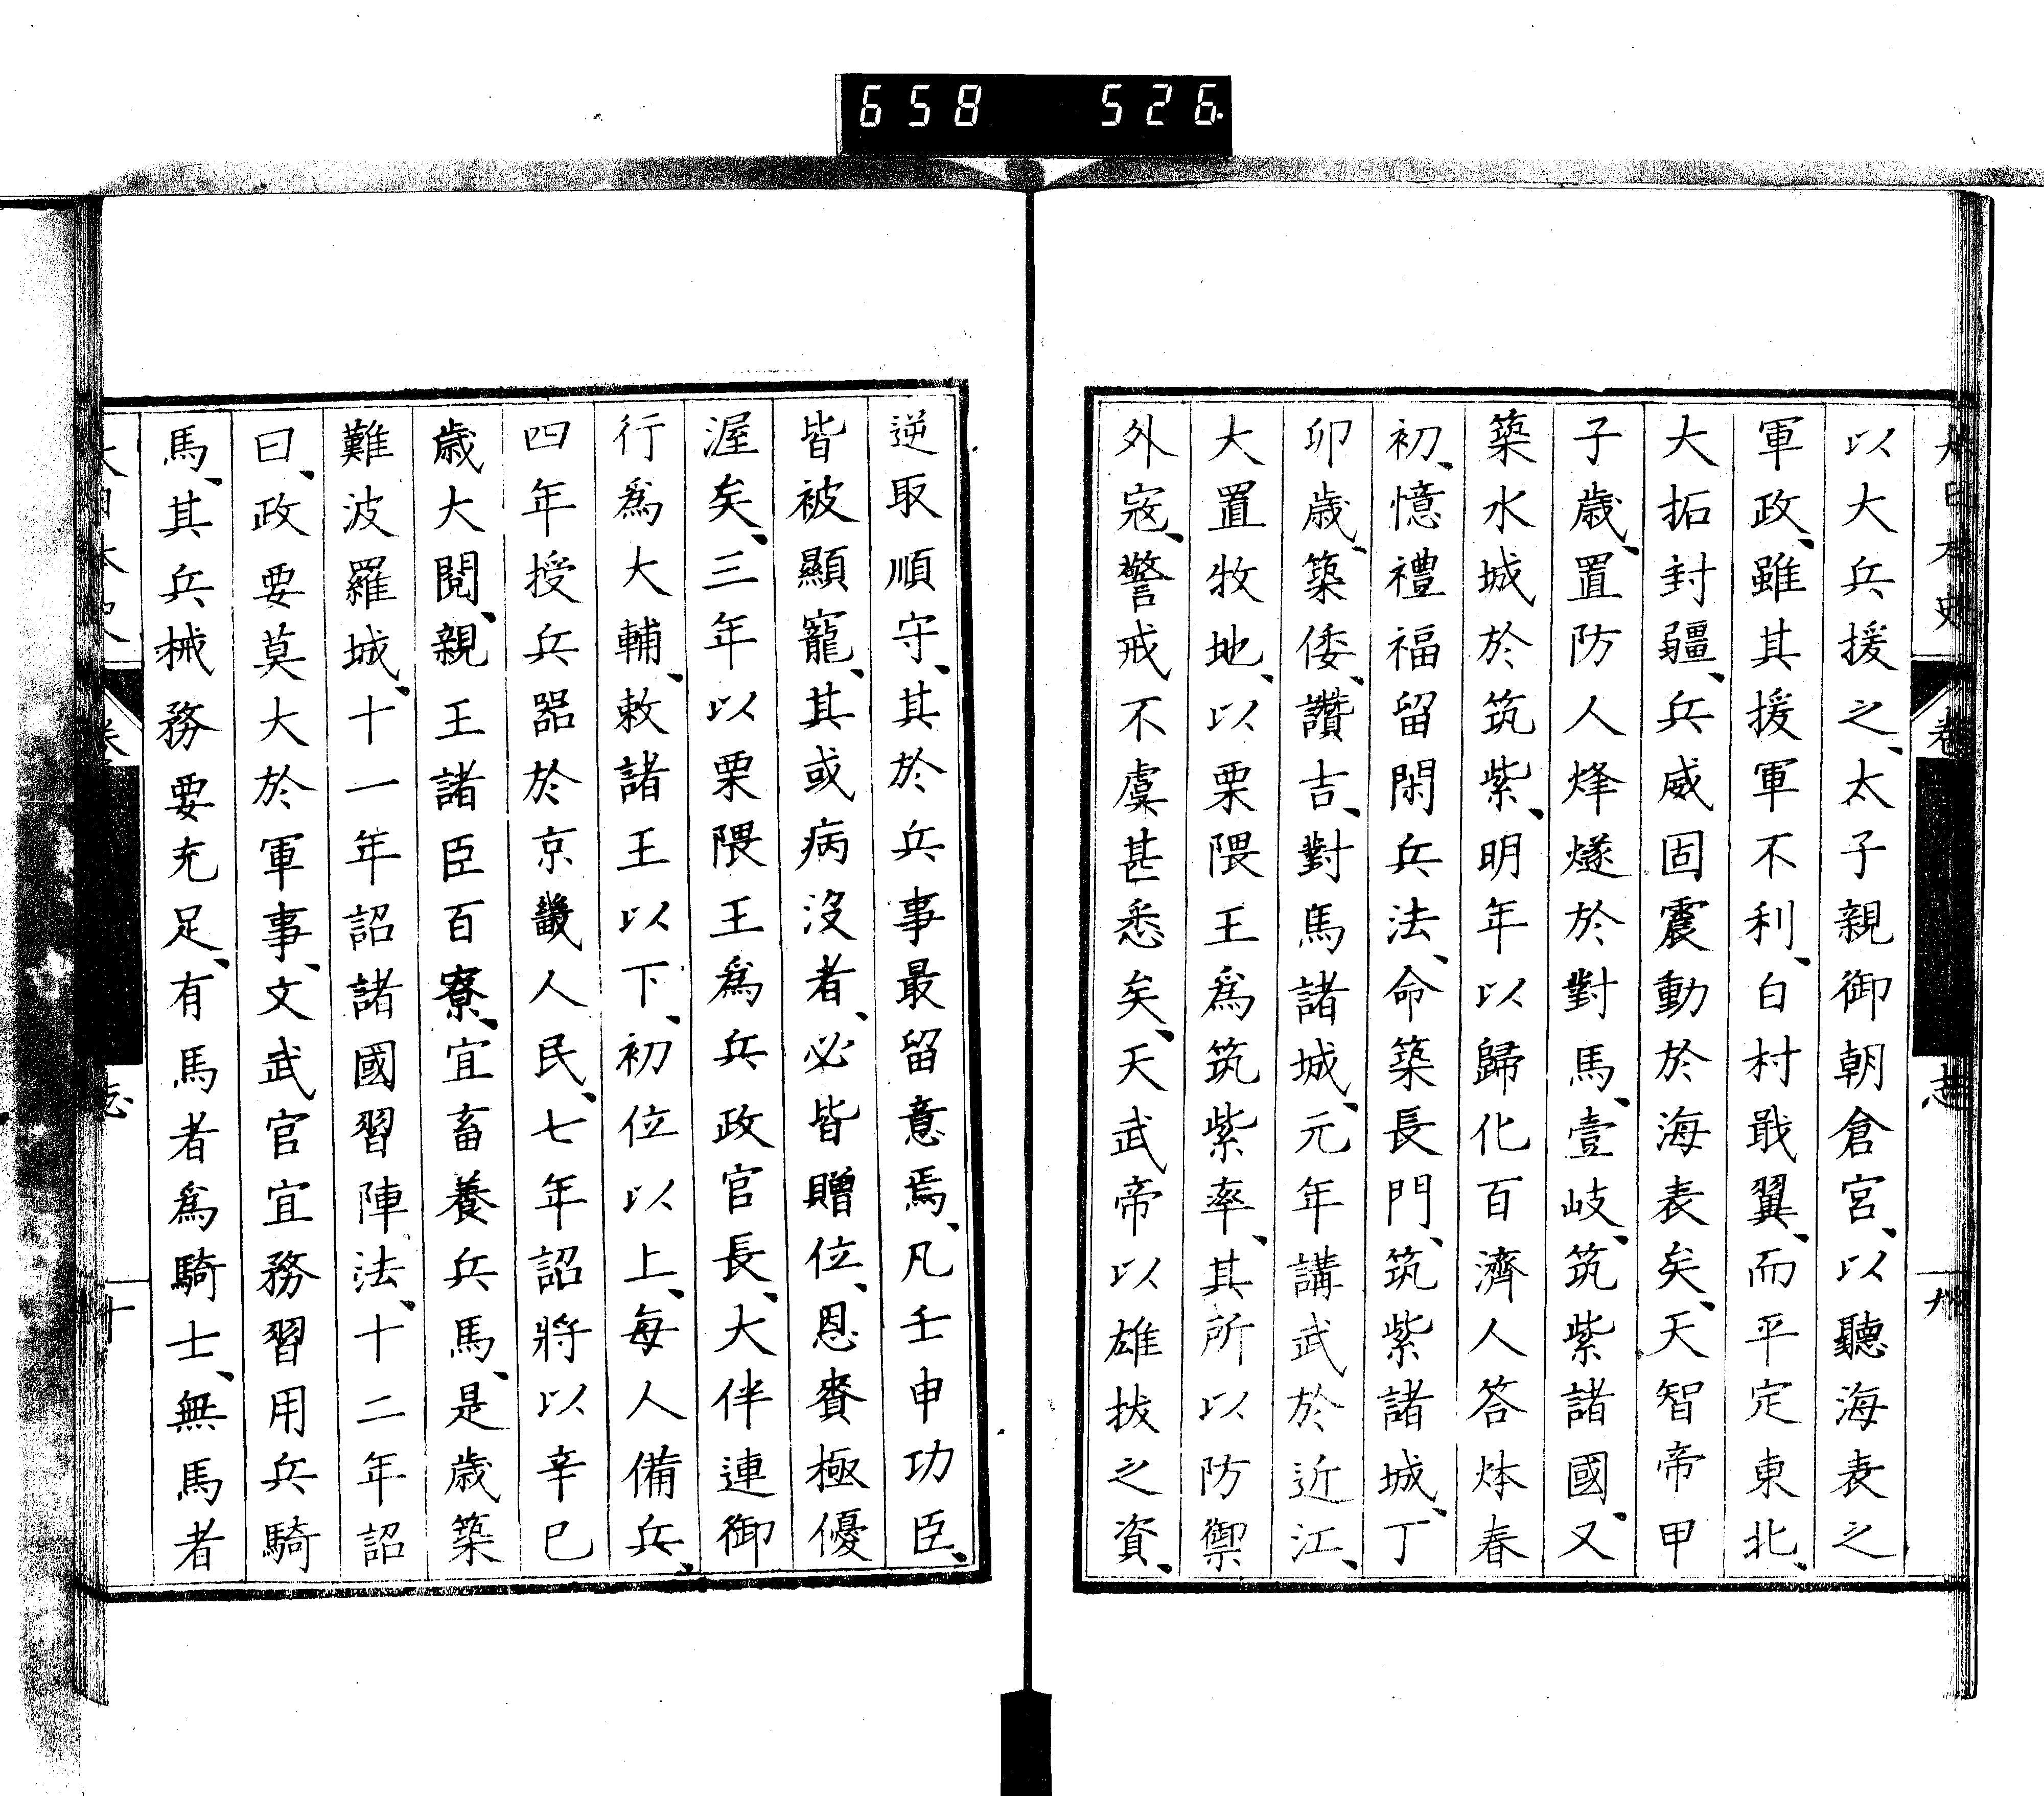 658 526
大日本史 卷 志
以大兵援之、太子親御朝倉宮、以聽海表之
軍政、雖其援軍不利、白村戰翼、而平定東北、
大拓封疆、兵威固震動於海表矣、天智帝甲
子歳、置防人烽燧於對馬、壹岐、筑紫諸國、又
築水城於筑紫、明年以歸化百濟人答㶱春
初、憶禮福留閑兵法、命築長門、筑紫諸城、丁
卯歳、築倭、讚吉、對馬諸城、元年講武於近江、
大置牧地、以栗隈王爲筑紫率、其所以防禦
外寇、警戒不虞甚悉矣、天武帝以雄拔之資、
逆取順守、其於兵事最留意焉、凡壬申功臣、
皆被顯寵、其或病沒者、必皆贈位、恩賚極優
渥矣、三年以栗隈王爲兵政官長、大伴連御
行爲大輔、敕諸王以下、初位以上、每人備兵、
四年授兵器於京畿人民、七年詔將以辛巳
歳大閲、親王諸臣百寮、宜畜養兵馬、是歳築
難波羅城、十一年詔諸國習陣法、十二年詔
曰、政要莫大於軍事、文武官宜務習用兵騎
馬、其兵械務要充足、有馬者爲騎士、無馬者